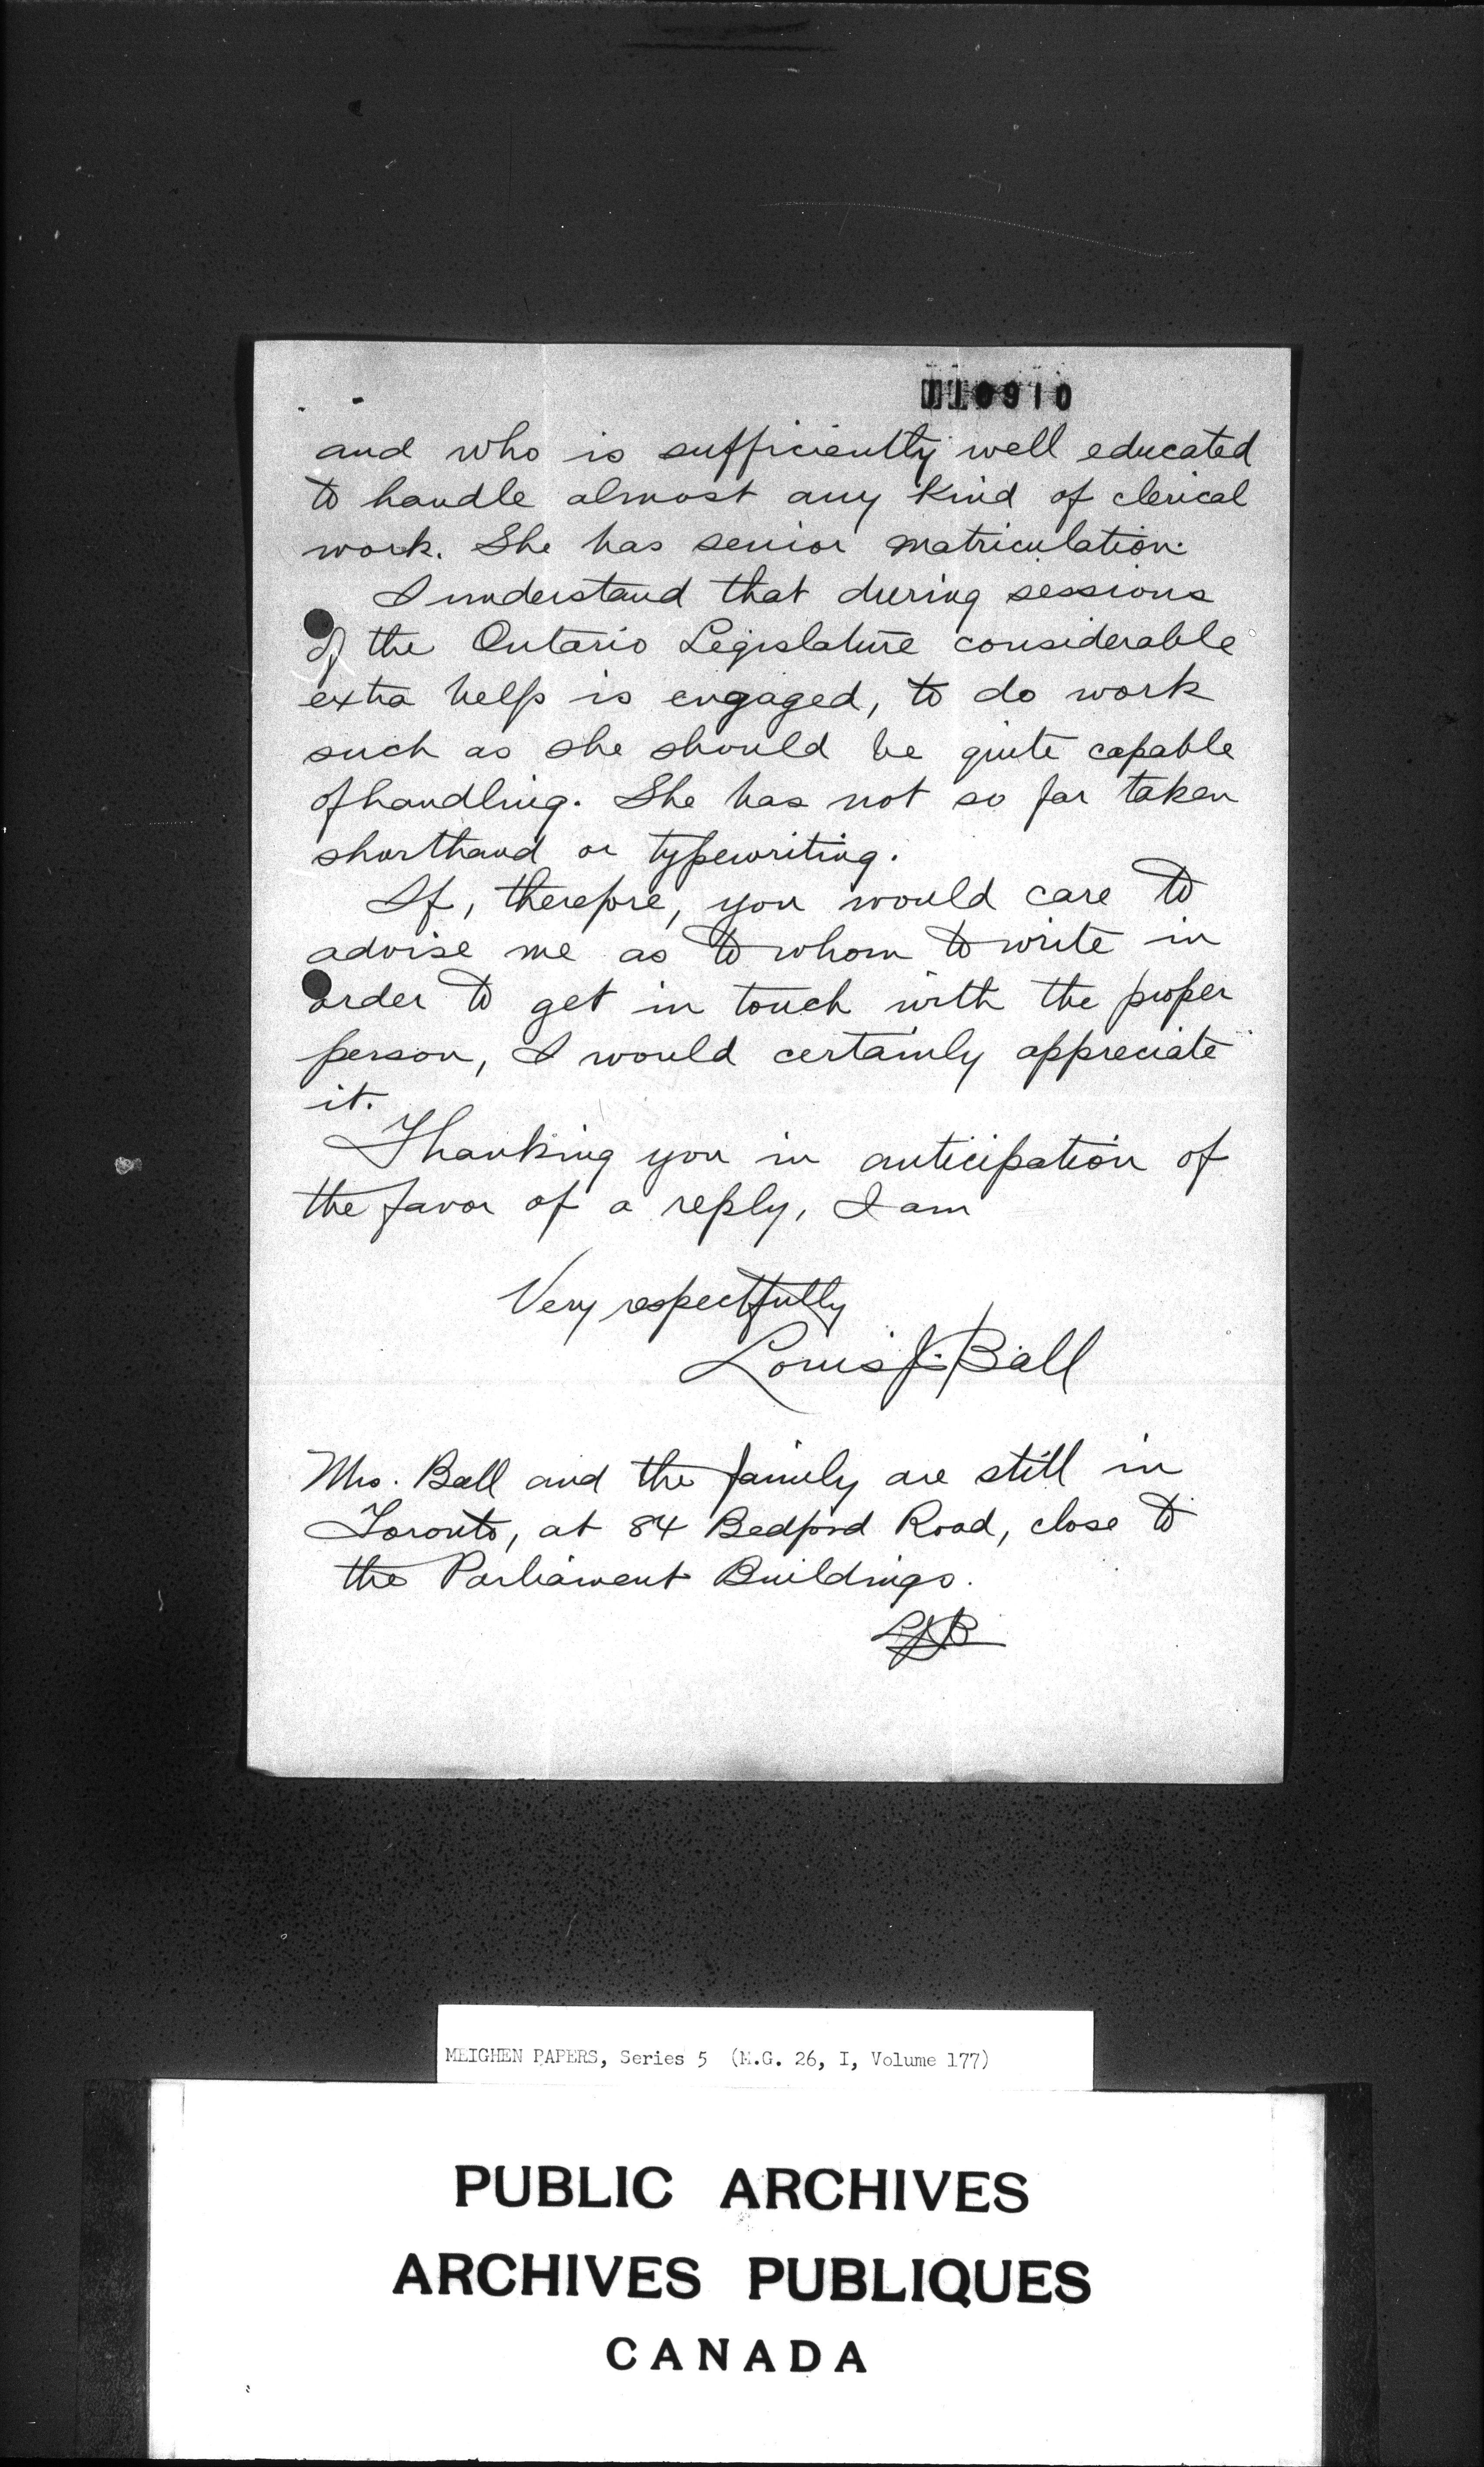 110910
and who is sufficiently well educated
to handle almost any kind of clerical
work. She has senior matriculation.
I understand that during sessions
of the Ontario Legislature considerable
extra help is engaged, to do work
such as she should be quite capable
of handling. She has not so far taken
shorthand or typewriting.
If, therefore, you would care to
advise me as to whom to write in
order to get in touch with the proper
person, I would certainly appreciate
it.
Thanking you in anticipation of
the favor of a reply, I am
Very respectfully
Louis J. Ball
Mrs. Ball and the family are still in
Toronto, at 84 Bedford Road, close to
the Parliament Buildings.
LJB
MEIGHEN PAPERS, Series 5 (M.G. 26, I, Volume 177)
PUBLIC ARCHIVES
ARCHIVES PUBLIQUES
CANADA